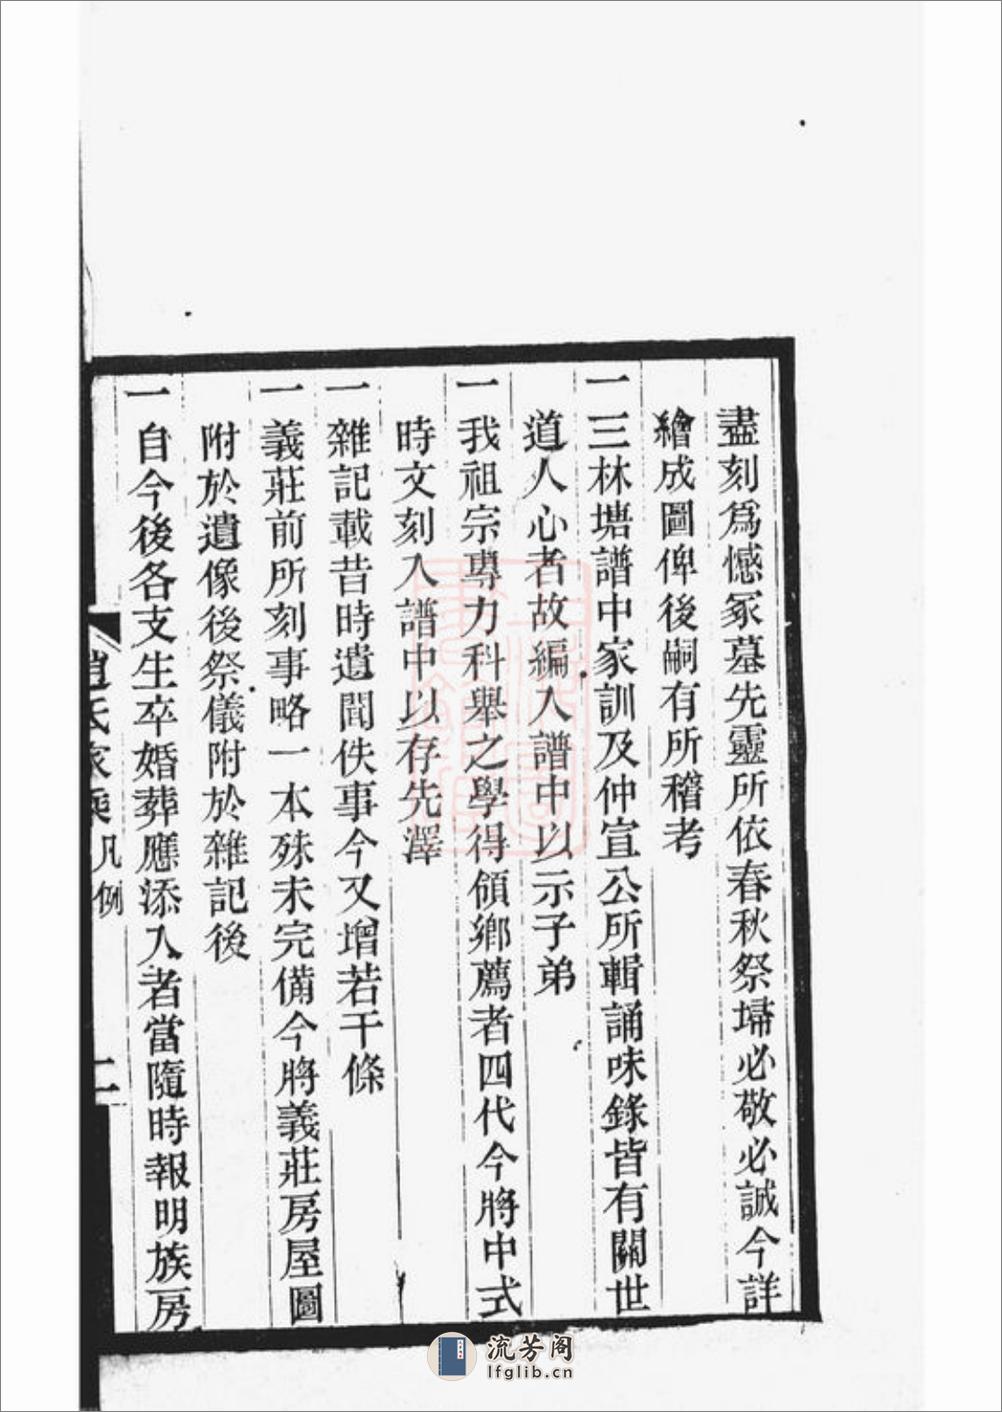 盡刻爲憾冢墓先靈所依春秋祭埽必敬必誠今詳
繪成圖俾後嗣有所稽考
一三林塘譜中家訓及仲宣公所輯誦味錄皆有關世
道人心者故編入譜中以示子弟
一我祖宗專力科舉之學得領鄉薦者四代今將中式
時文刻入譜中以存先澤
一雜記載昔時遺聞佚事今又增若干條
一義莊前所刻事略一本殊未完備今將義莊房屋圖
附於遺像後祭儀附於雜記後
一自今後各支生卒婚葬應添入者當隨時報明族房
趙氏家乘 凡例 二
流芳阁
lfglib.cn